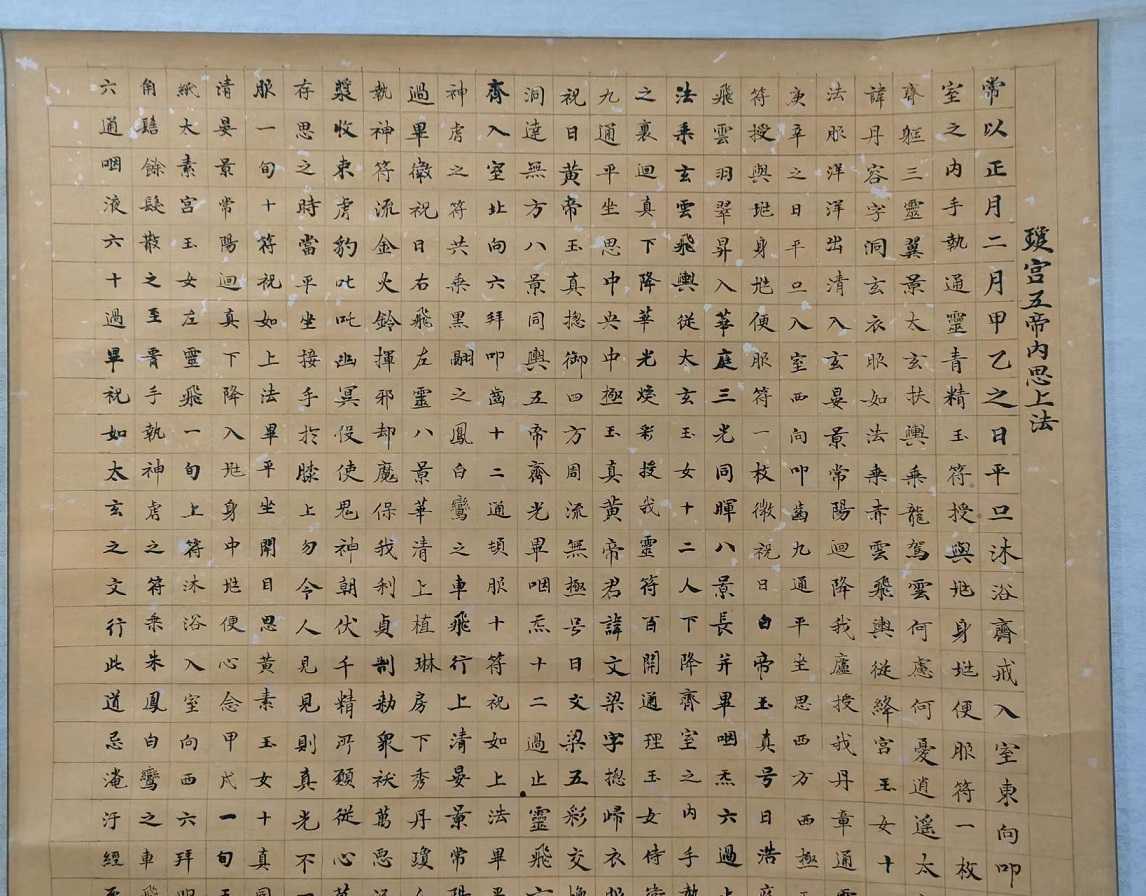 瓊宮五帝内思上法
常以正月二月甲乙之日平旦沐浴齋戒入室東向叩
室之内手執通靈青精玉符授與兆身兆便服符一枚
齊軀三靈翼景太玄扶輿乗龍駕雲何慮何憂逍遥太
諱丹容字洞玄衣服如法乗赤雲飛輿從絳宮玉女十
法服洋洋出清入玄晏景常陽迴降我廬授我丹章通
庚辛之日平旦入室西向叩齒九通平坐思西方西極
符授與兆身兆便服符一枚微祝曰白帝玉真号曰浩
飛雲羽翠昇入華庭三光同暉八景長并畢咽炁六過
法乗玄雲飛輿從太玄玉女十二人下降齊室之内手
之裏迴真下降華光煥彩授我靈符百關通理玉女侍
九通平坐思中央中極玉真黃帝君諱文梁字揔歸衣
祝曰黃帝玉真揔御四方周流無極号曰文梁五彩交
洞達無方八景同輿五帝齊光畢咽炁十二過止靈飛
齋入室北向六拜叩齒十二通頓服十符祝如上法畢
神虎之符共乗黑翮之鳳白鸞之車飛行上清晏景常
過畢微祝曰右飛左靈八景華清上植琳房下秀丹瓊
執神符流金火鈴揮邪却魔保我利貞制勑衆祅萬惡
漿收束虎豹叱吒幽冥役使鬼神朝伏千精所願從心
存思之時當平坐接手於膝上勿令人見見則真光不
服一旬十符祝如上法畢平坐閉目思黃素玉女十真
清晏景常陽迴真下降入兆身中兆便心念甲戌一旬
紙太素宮玉女左靈飛一旬上符沐浴入室向西六拜
角髻餘髮散之至脣手執神虎之符乗朱鳳白鸞之車
六通咽液六十過畢祝如太玄之文行此道忌淹汙經